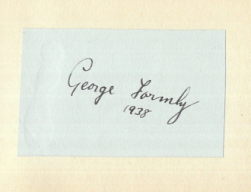 George Formby
1938